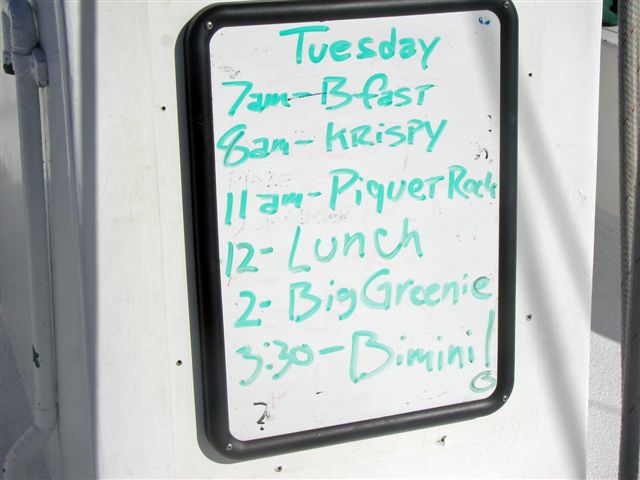 Tuesday
7am-B-fast
8am-KRISPY
11am-Piquet Rock
12-Lunch
2-Big Greenie
3:30-Bimini!